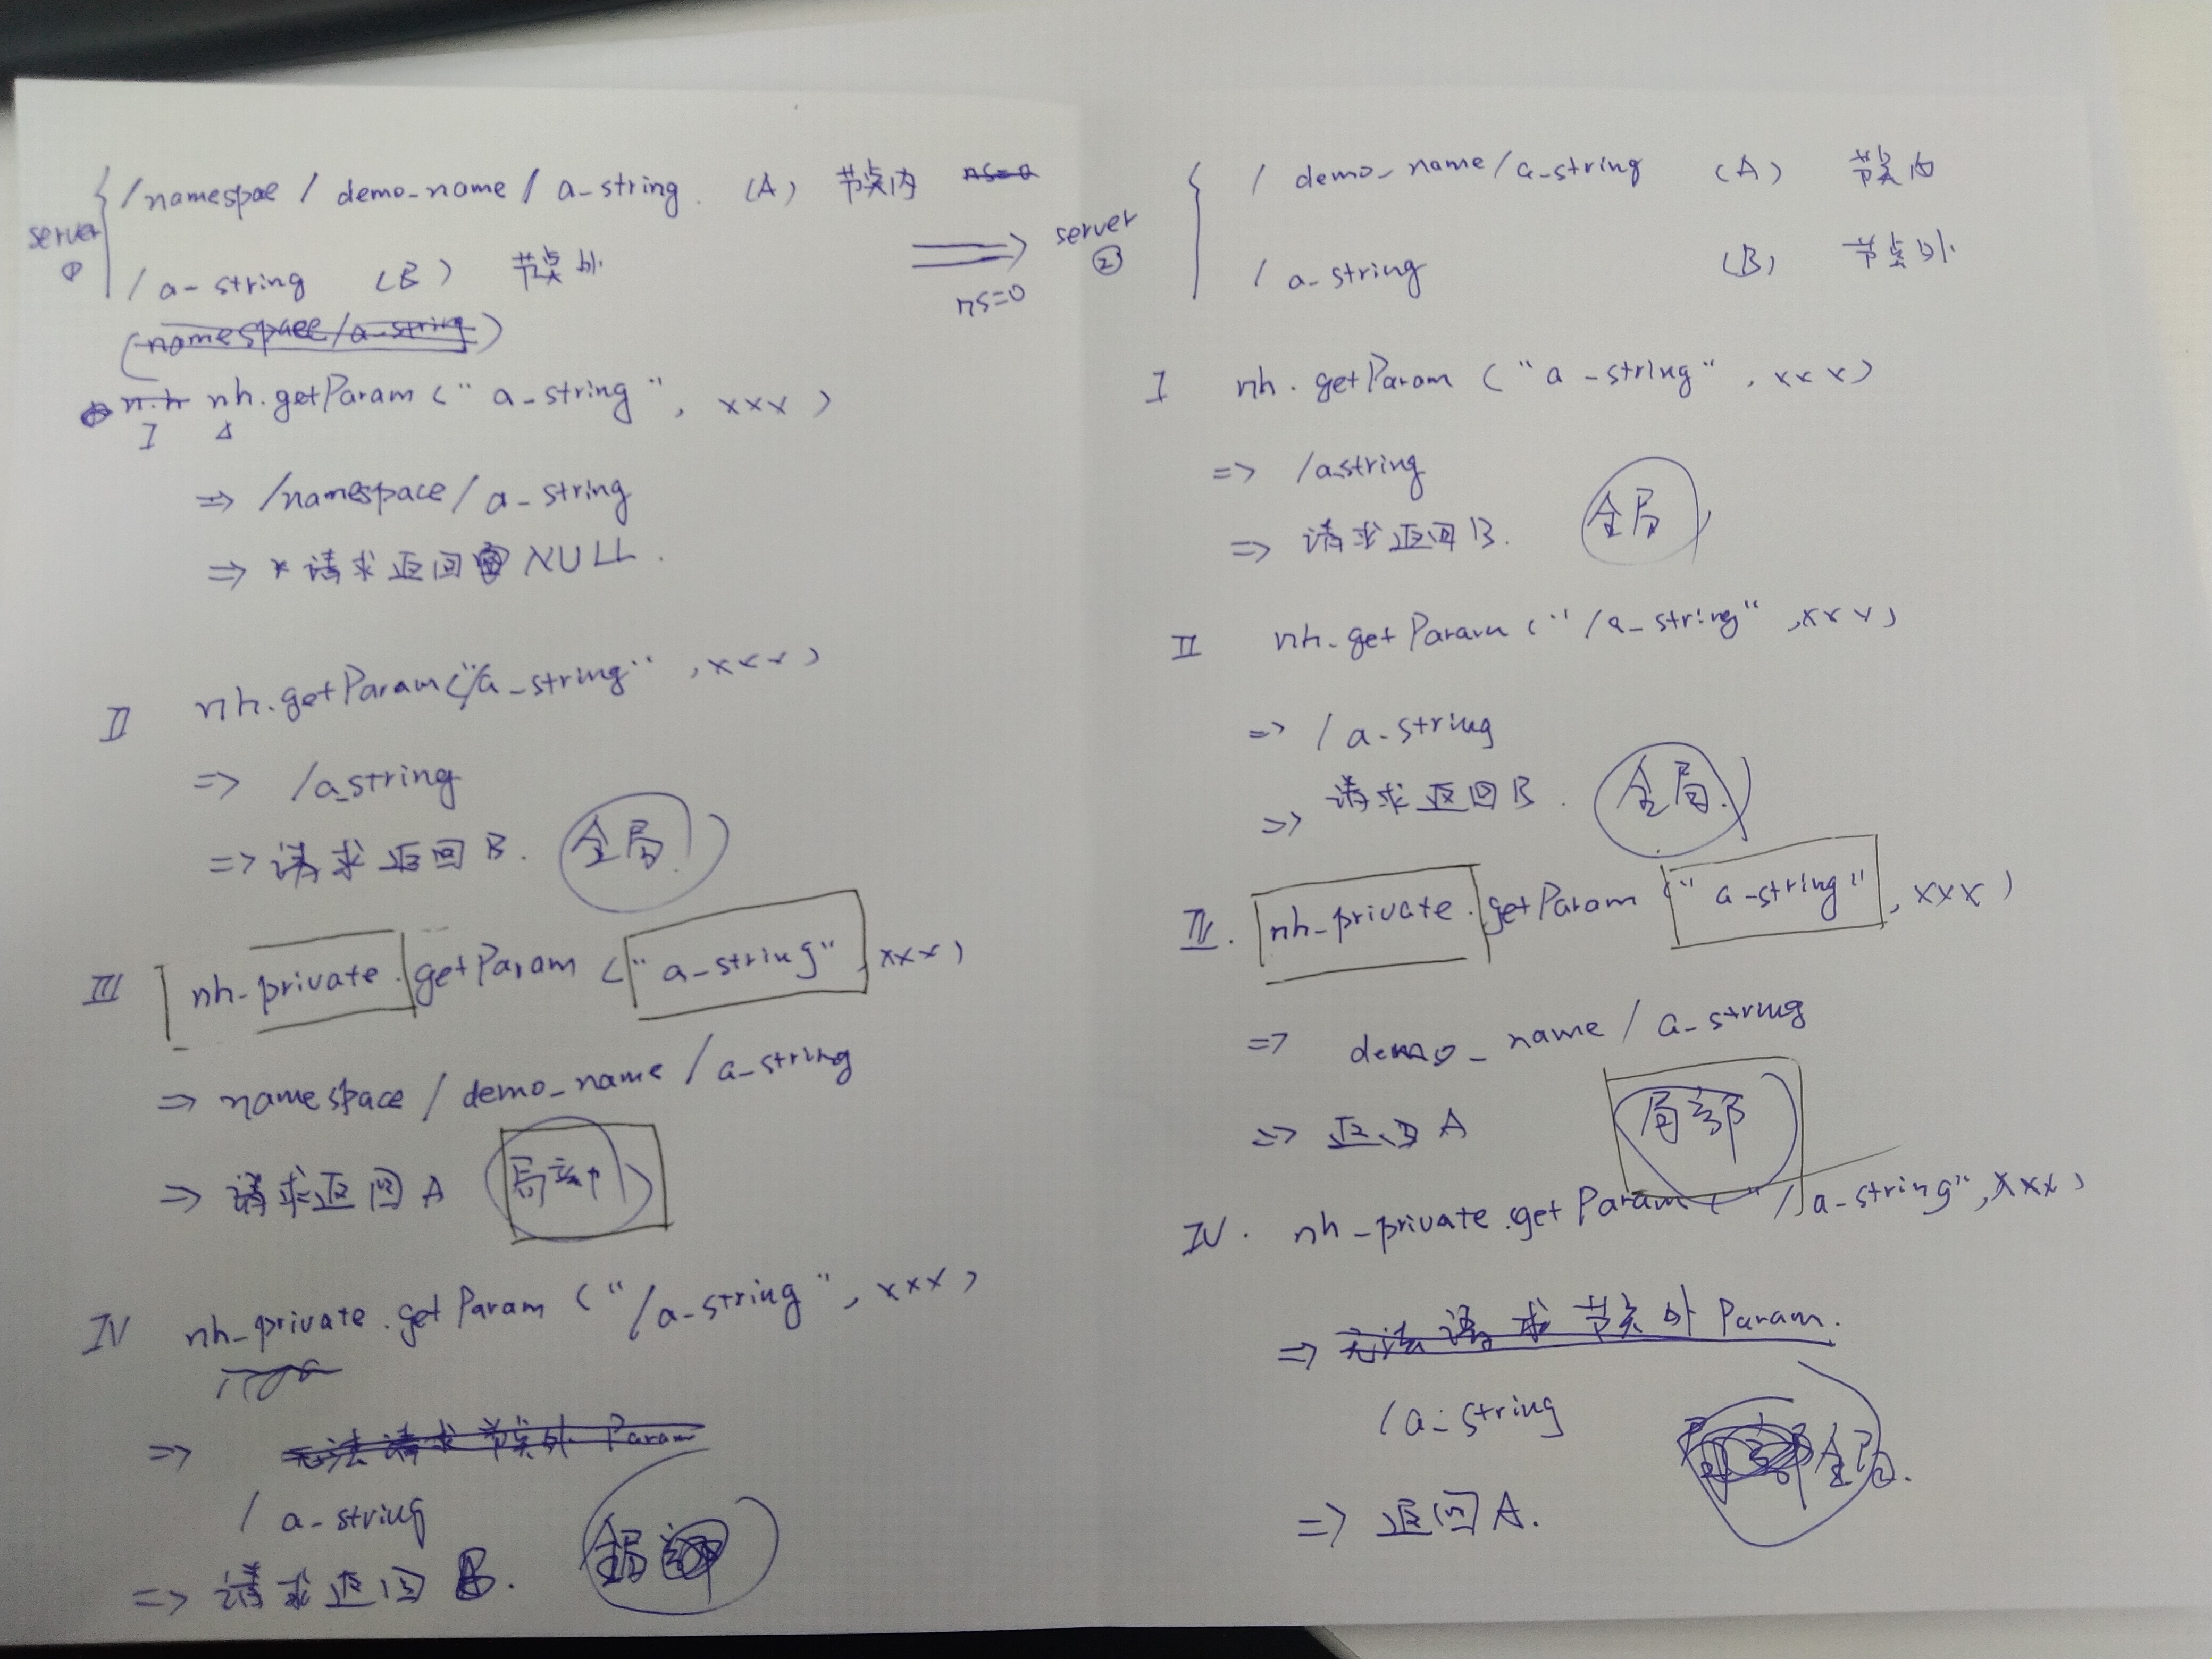 server
①
{ /namespae / demo-name / a-string. (A) 节点内
/ a-string (B) 节点外.
ns=0
I nh.getParam ( " a-string " , xxx )
=> /namespace / a-string
=> 请求返回 NULL.
II nh.getParam ("/a-string" , xxx )
=> /a_string
=> 请求返回 B. 全局.
III nh-private.getParam ( " a-string" , xxx )
=> namespace / demo_name / a_string
=> 请求返回 A
IV nh-private.getParam ( "/a-string" , xxx )
=> / a-string
=> 请求返回 B.
server
②
{ / demo_name / a-string (A) 节点内
/ a-string (B) 节点外.
I nh.getParam ( " a-string" , xxx )
=> /a_string
=> 请求返回 B. 全局
II nh.getParam ( "/a-string" , xxx )
=> / a-string
=> 请求返回 B. 全局.
III. nh-private.getParam ( " a-string" , xxx )
=> demo_name / a-string
=> 返回 A 局部
IV. nh-private.getParam ( "/a-string" , xxx )
=> 无法请求节点外 Param.
/a-string
=> 返回 A. 全局.